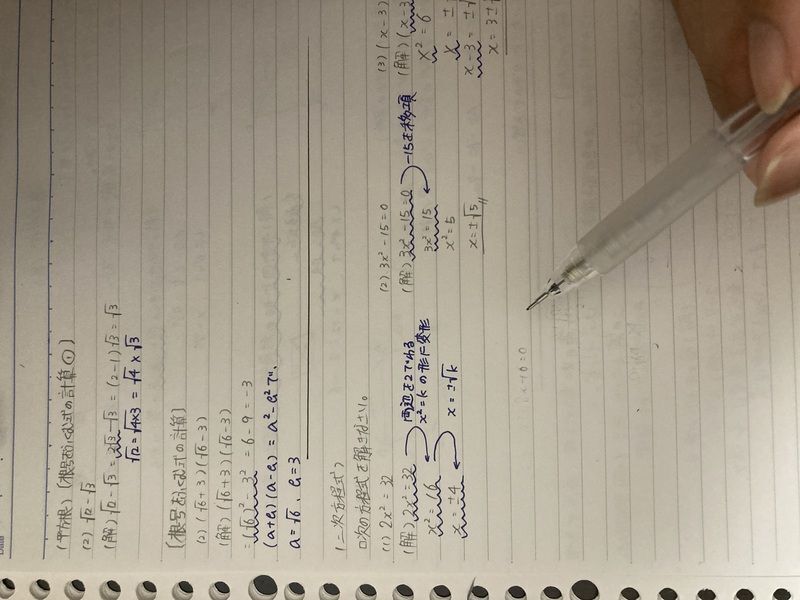 (平方根)〔根号を含む式の計算①〕
(2) √12-√3
(解) √12-√3 = 2√3-√3 = (2-1)√3 = √3
√12 = √4×3 = √4 × √3
〔根号を含む式の計算〕
(2) (√6+3)(√6-3)
(解) (√6+3)(√6-3)
= (√6)²-3² = 6-9 = -3
(a+b)(a-b) = a²-b² で、
a=√6、b=3
(二次方程式)
□次の方程式を解きなさい。
(1) 2x² = 32
(解) 2x² = 32
両辺を2でわる
x²=kの形に変形
x² = 16
x = ±√k
x = ±4
(2) 3x²-15=0
(解) 3x²-15=0
-15を移項
3x² = 15
x² = 5
x = ±√5
(3) (x-3)
(解) (x-3
X² = 6
X = ±
x-3 = ±√
x = 3±